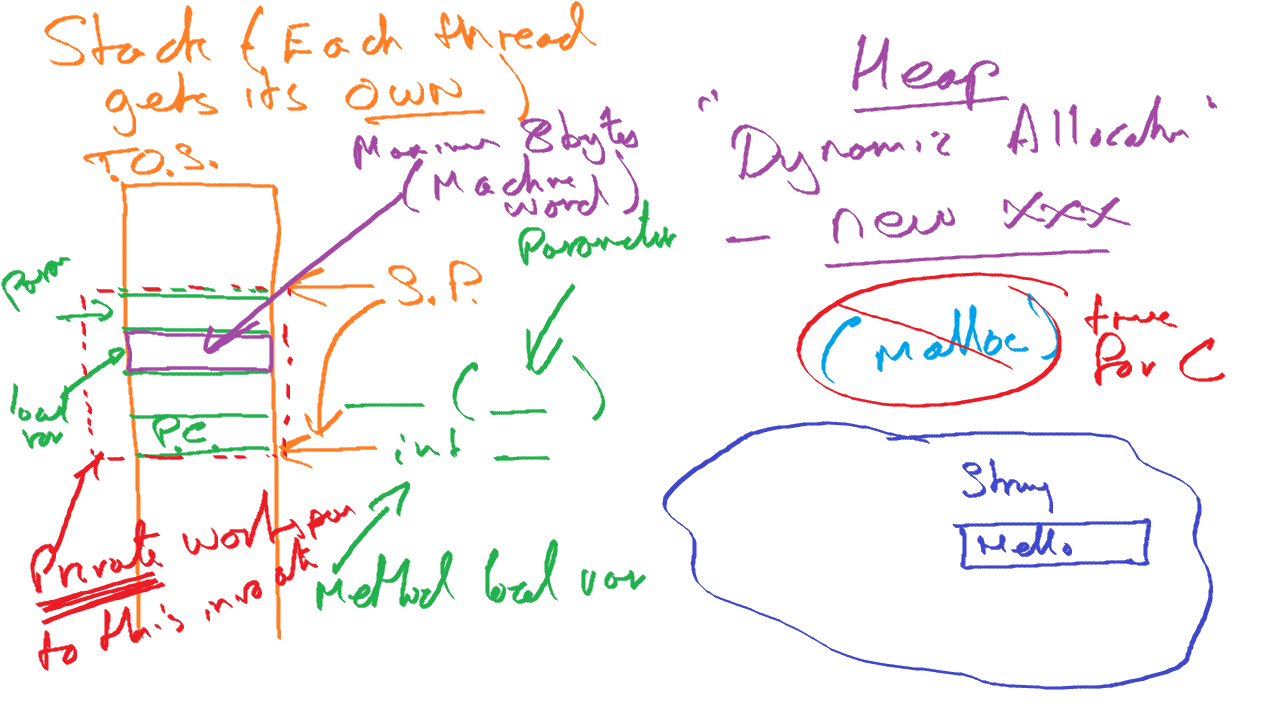 Stack (Each thread
gets its OWN)
T.O.S.
Maximum 8 bytes
(Machine
word)
Parameter
Param
S.P.
local
var
P.C.
( )
int
Private workspace
to this invocation
Method local var
Heap
"Dynamic Allocation"
- new xxx
(malloc)
true
for C
String
Hello